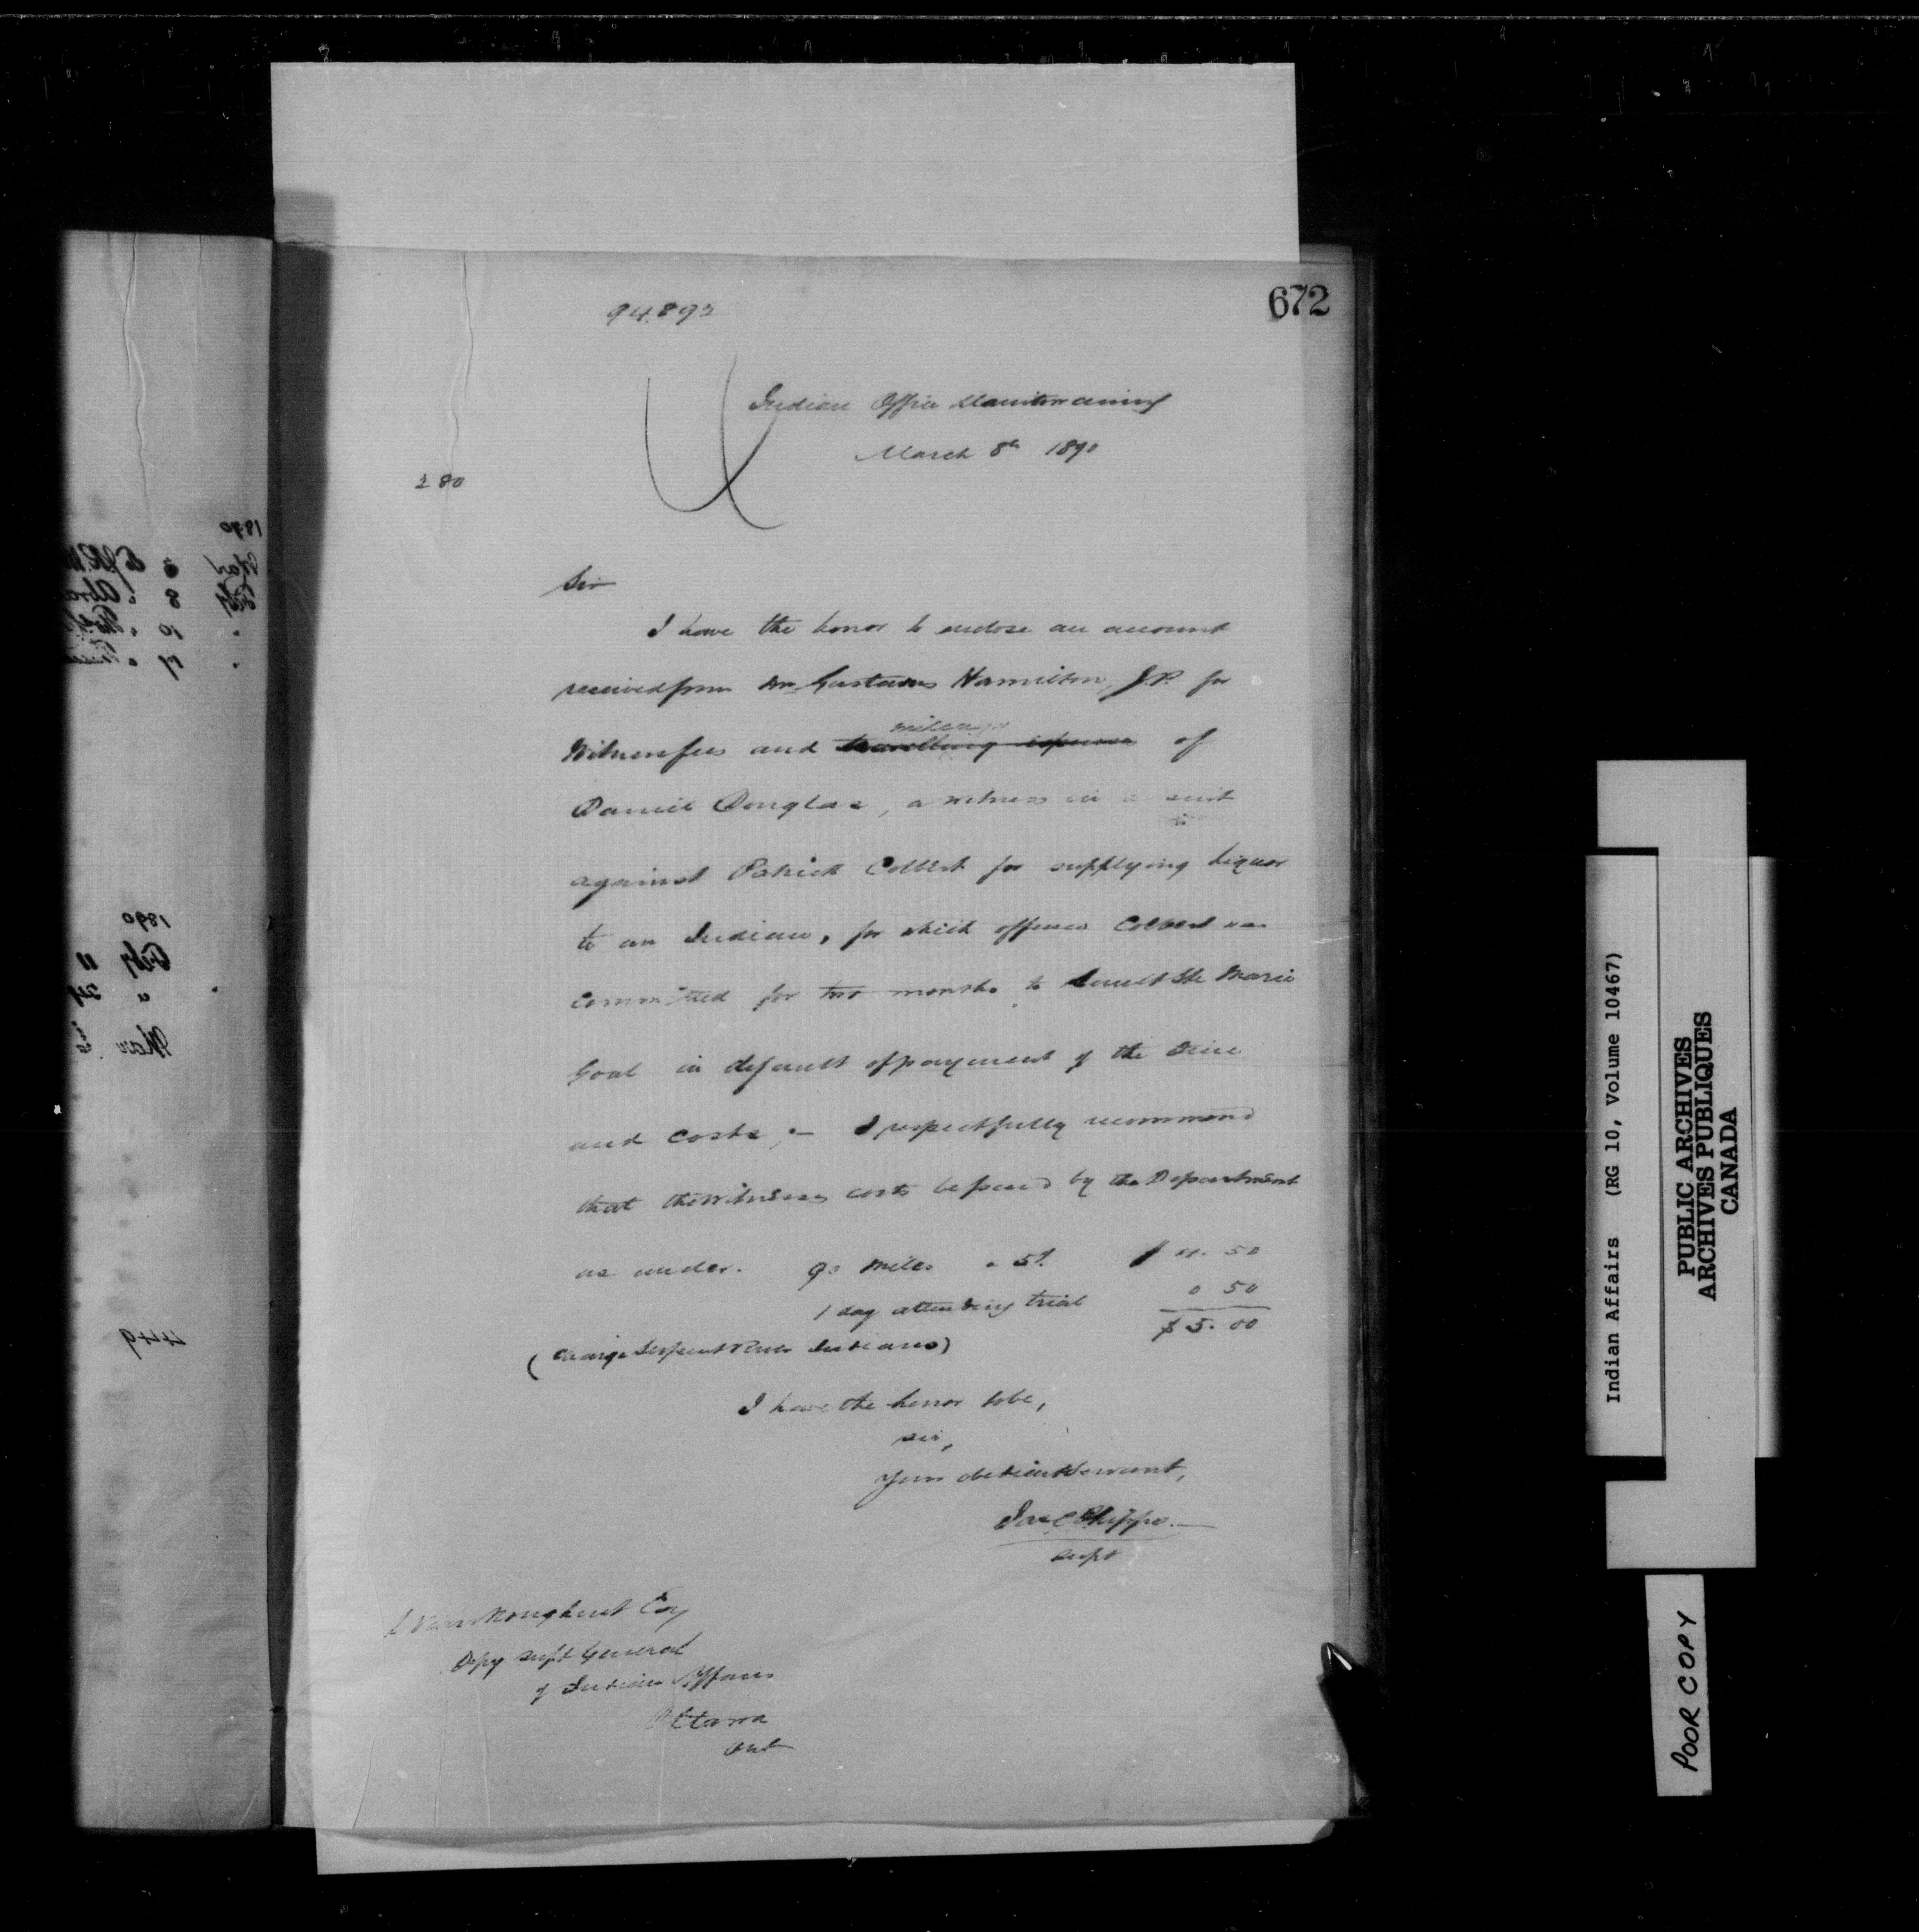 672
94.893
Indian Office Manitowaning
March 8th 1890
280
Sir
I have the honor to enclose an account
received from Mr Gustavus Hamilton, J.P. for
Witness fees and mileage travelling expenses of
Daniel Douglas, a witness in a suit
against Patrick Colbert for supplying liquor
to an Indian, for which offence Colbert was
committed for two months to Sault Ste Marie
Goal in default of payment of the fine
and costs;— I respectfully recommend
that the witness costs be paid by the Department
as under. 90 miles 5¢. $ 4. 50
1 day attending trial 0 50
$ 5. 00
(Charge Serpent River Indians)
I have the honor to be,
sir,
Your obedient Servant,
Jas C Phipps.
supt
L Vankoughnet Esq
Depy Supt General
of Indian Affairs
Ottawa
Ont
1890
Mar
Feby 8
" 10
" 17
1890
Feby 11
" 24
Mar
449
Indian Affairs (RG 10, Volume 10467)
PUBLIC ARCHIVES
ARCHIVES PUBLIQUES
CANADA
POOR COPY